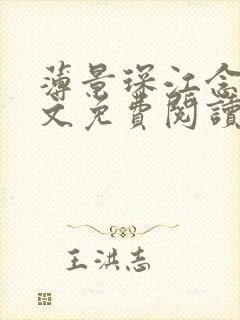 薄景琛江念
文免費閱讀
王洪志